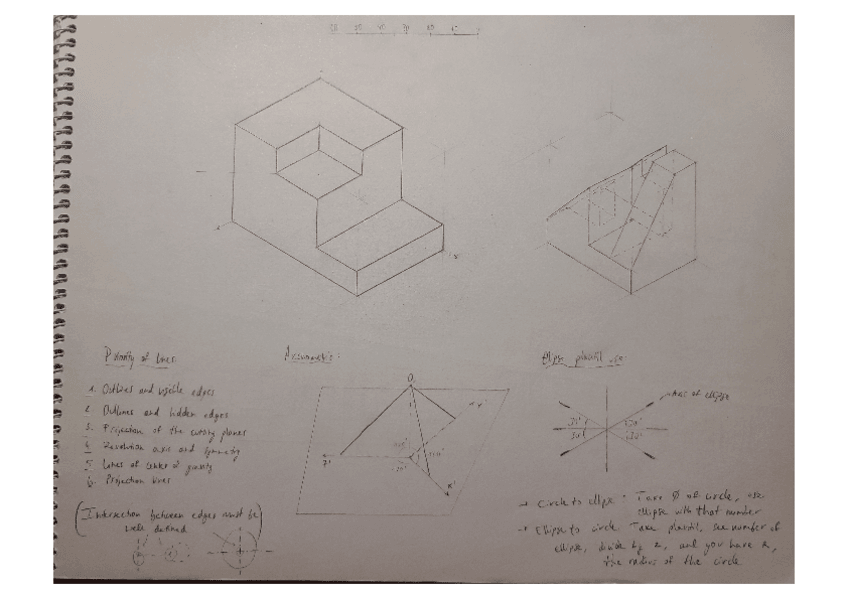 Priority of lines:
1. Outlines and visible edges
2. Outlines and hidden edges
3. Projection of the cutting planes
4. Revolution axis and symmetry
5. Lines of center of gravity
6. Projection lines
(Intersection between edges must be
well defined)
Axonometric:
O
120°
Elipse plantil use:
axes of ellipse
30°
→ Circle to ellipse: Take Ø of circle, use
ellipse with that number
→ Ellipse to circle Take plantil, see number of
ellipse, divide by 2, and you have R,
the radius of the circle